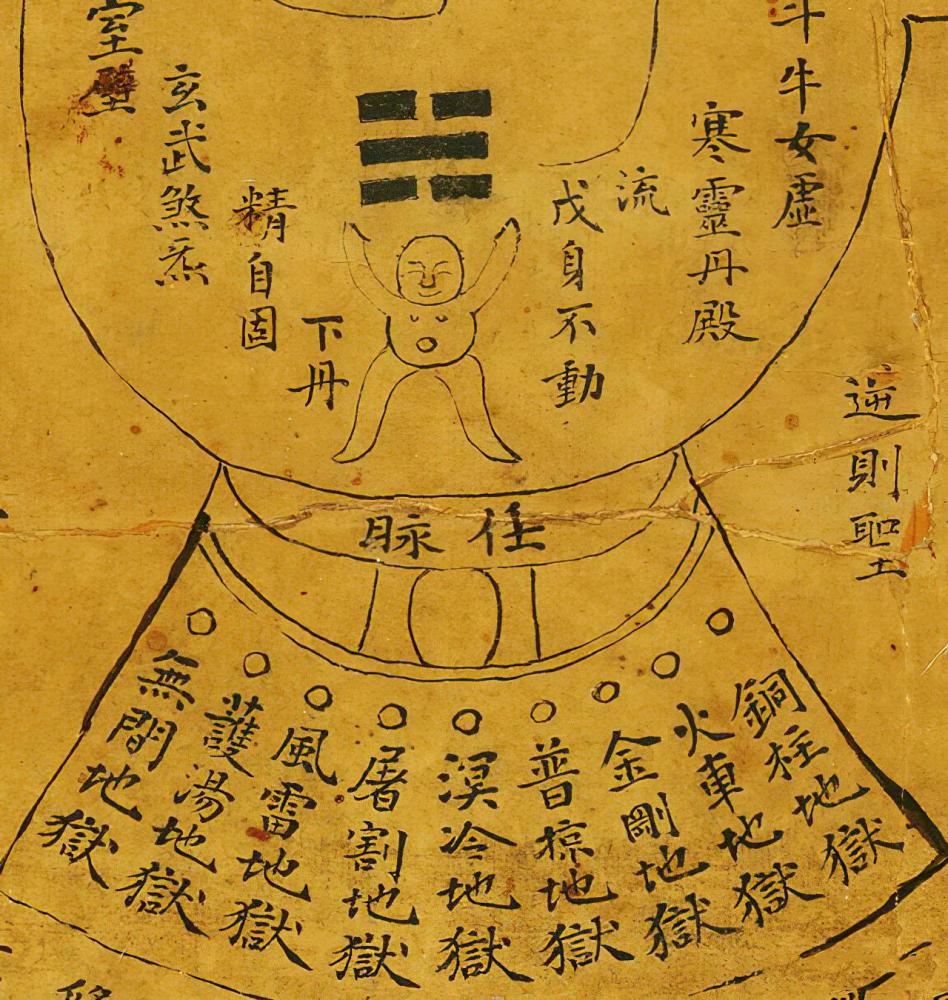 逆則聖
斗牛女虛
寒靈丹殿
流
戊身不動
下丹
精自固
玄武煞炁
室壁
任脉
銅柱地獄
火車地獄
金剛地獄
普掠地獄
溟冷地獄
屠割地獄
風雷地獄
護湯地獄
無間地獄